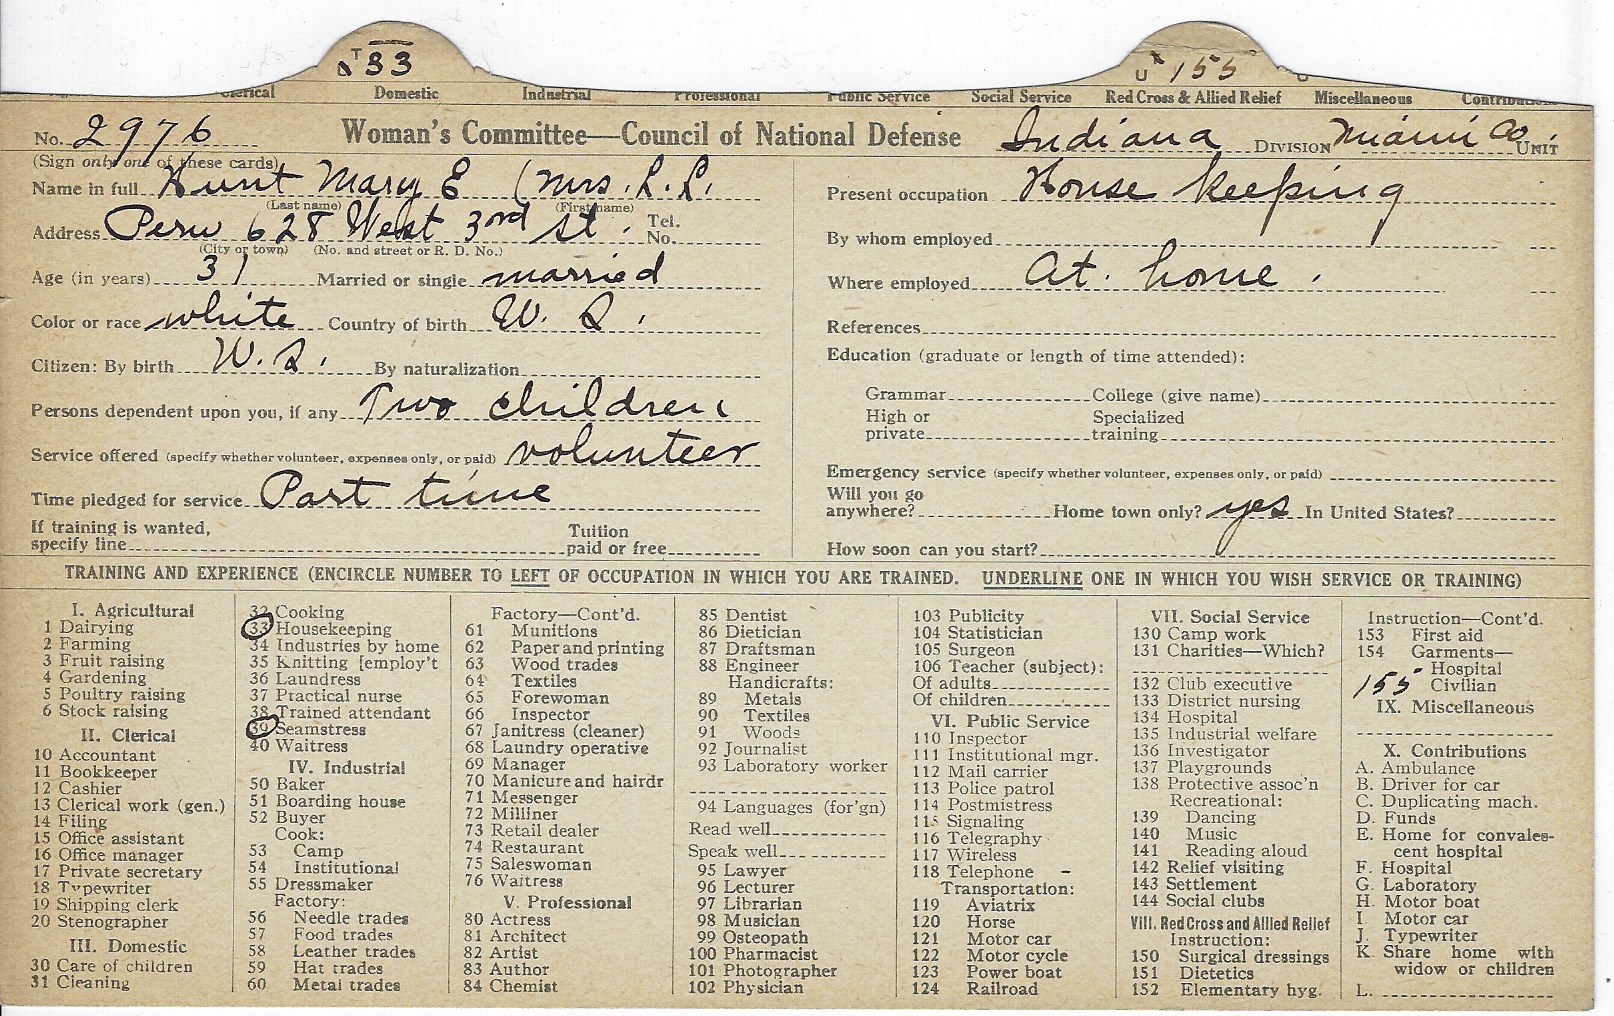 T 33
U 155
Clerical Domestic Industrial Professional Public Service Social Service Red Cross & Allied Relief Miscellaneous Contributions
No. 2976 Woman's Committee—Council of National Defense Indiana DIVISION Miami Co UNIT
(Sign only one of these cards)
Name in full Hunt Mary E (Mrs. L. L.
(Last name) (First name)
Address Peru 628 West 3rd st. Tel. No.
(City or town) (No. and street or R. D. No.)
Age (in years) 31 Married or single married
Color or race white Country of birth U. S.
Citizen: By birth U. S. By naturalization
Persons dependent upon you, if any Two children
Service offered (specify whether volunteer, expenses only, or paid) volunteer
Time pledged for service Part time
If training is wanted, specify line Tuition paid or free
Present occupation House keeping
By whom employed
Where employed At home.
References
Education (graduate or length of time attended):
Grammar College (give name)
High or private Specialized training
Emergency service (specify whether volunteer, expenses only, or paid)
Will you go anywhere? Home town only? yes In United States?
How soon can you start?
TRAINING AND EXPERIENCE (ENCIRCLE NUMBER TO LEFT OF OCCUPATION IN WHICH YOU ARE TRAINED. UNDERLINE ONE IN WHICH YOU WISH SERVICE OR TRAINING)
I. Agricultural
1 Dairying
2 Farming
3 Fruit raising
4 Gardening
5 Poultry raising
6 Stock raising
II. Clerical
10 Accountant
11 Bookkeeper
12 Cashier
13 Clerical work (gen.)
14 Filing
15 Office assistant
16 Office manager
17 Private secretary
18 Typewriter
19 Shipping clerk
20 Stenographer
III. Domestic
30 Care of children
31 Cleaning
32 Cooking
33 Housekeeping
34 Industries by home
35 Knitting [employ't
36 Laundress
37 Practical nurse
38 Trained attendant
39 Seamstress
40 Waitress
IV. Industrial
50 Baker
51 Boarding house
52 Buyer
Cook:
53 Camp
54 Institutional
55 Dressmaker
Factory:
56 Needle trades
57 Food trades
58 Leather trades
59 Hat trades
60 Metal trades
Factory—Cont'd.
61 Munitions
62 Paper and printing
63 Wood trades
64 Textiles
65 Forewoman
66 Inspector
67 Janitress (cleaner)
68 Laundry operative
69 Manager
70 Manicure and hairdr
71 Messenger
72 Milliner
73 Retail dealer
74 Restaurant
75 Saleswoman
76 Waitress
V. Professional
80 Actress
81 Architect
82 Artist
83 Author
84 Chemist
85 Dentist
86 Dietician
87 Draftsman
88 Engineer
Handicrafts:
89 Metals
90 Textiles
91 Woods
92 Journalist
93 Laboratory worker
94 Languages (for'gn)
Read well
Speak well
95 Lawyer
96 Lecturer
97 Librarian
98 Musician
99 Osteopath
100 Pharmacist
101 Photographer
102 Physician
103 Publicity
104 Statistician
105 Surgeon
106 Teacher (subject):
Of adults
Of children
VI. Public Service
110 Inspector
111 Institutional mgr.
112 Mail carrier
113 Police patrol
114 Postmistress
115 Signaling
116 Telegraphy
117 Wireless
118 Telephone
Transportation:
119 Aviatrix
120 Horse
121 Motor car
122 Motor cycle
123 Power boat
124 Railroad
VII. Social Service
130 Camp work
131 Charities—Which?
132 Club executive
133 District nursing
134 Hospital
135 Industrial welfare
136 Investigator
137 Playgrounds
138 Protective assoc'n
Recreational:
139 Dancing
140 Music
141 Reading aloud
142 Relief visiting
143 Settlement
144 Social clubs
VIII. Red Cross and Allied Relief
Instruction:
150 Surgical dressings
151 Dietetics
152 Elementary hyg.
Instruction—Cont'd.
153 First aid
154 Garments—
Hospital
155 Civilian
IX. Miscellaneous
X. Contributions
A. Ambulance
B. Driver for car
C. Duplicating mach.
D. Funds
E. Home for convales-
cent hospital
F. Hospital
G. Laboratory
H. Motor boat
I. Motor car
J. Typewriter
K. Share home with
widow or children
L.